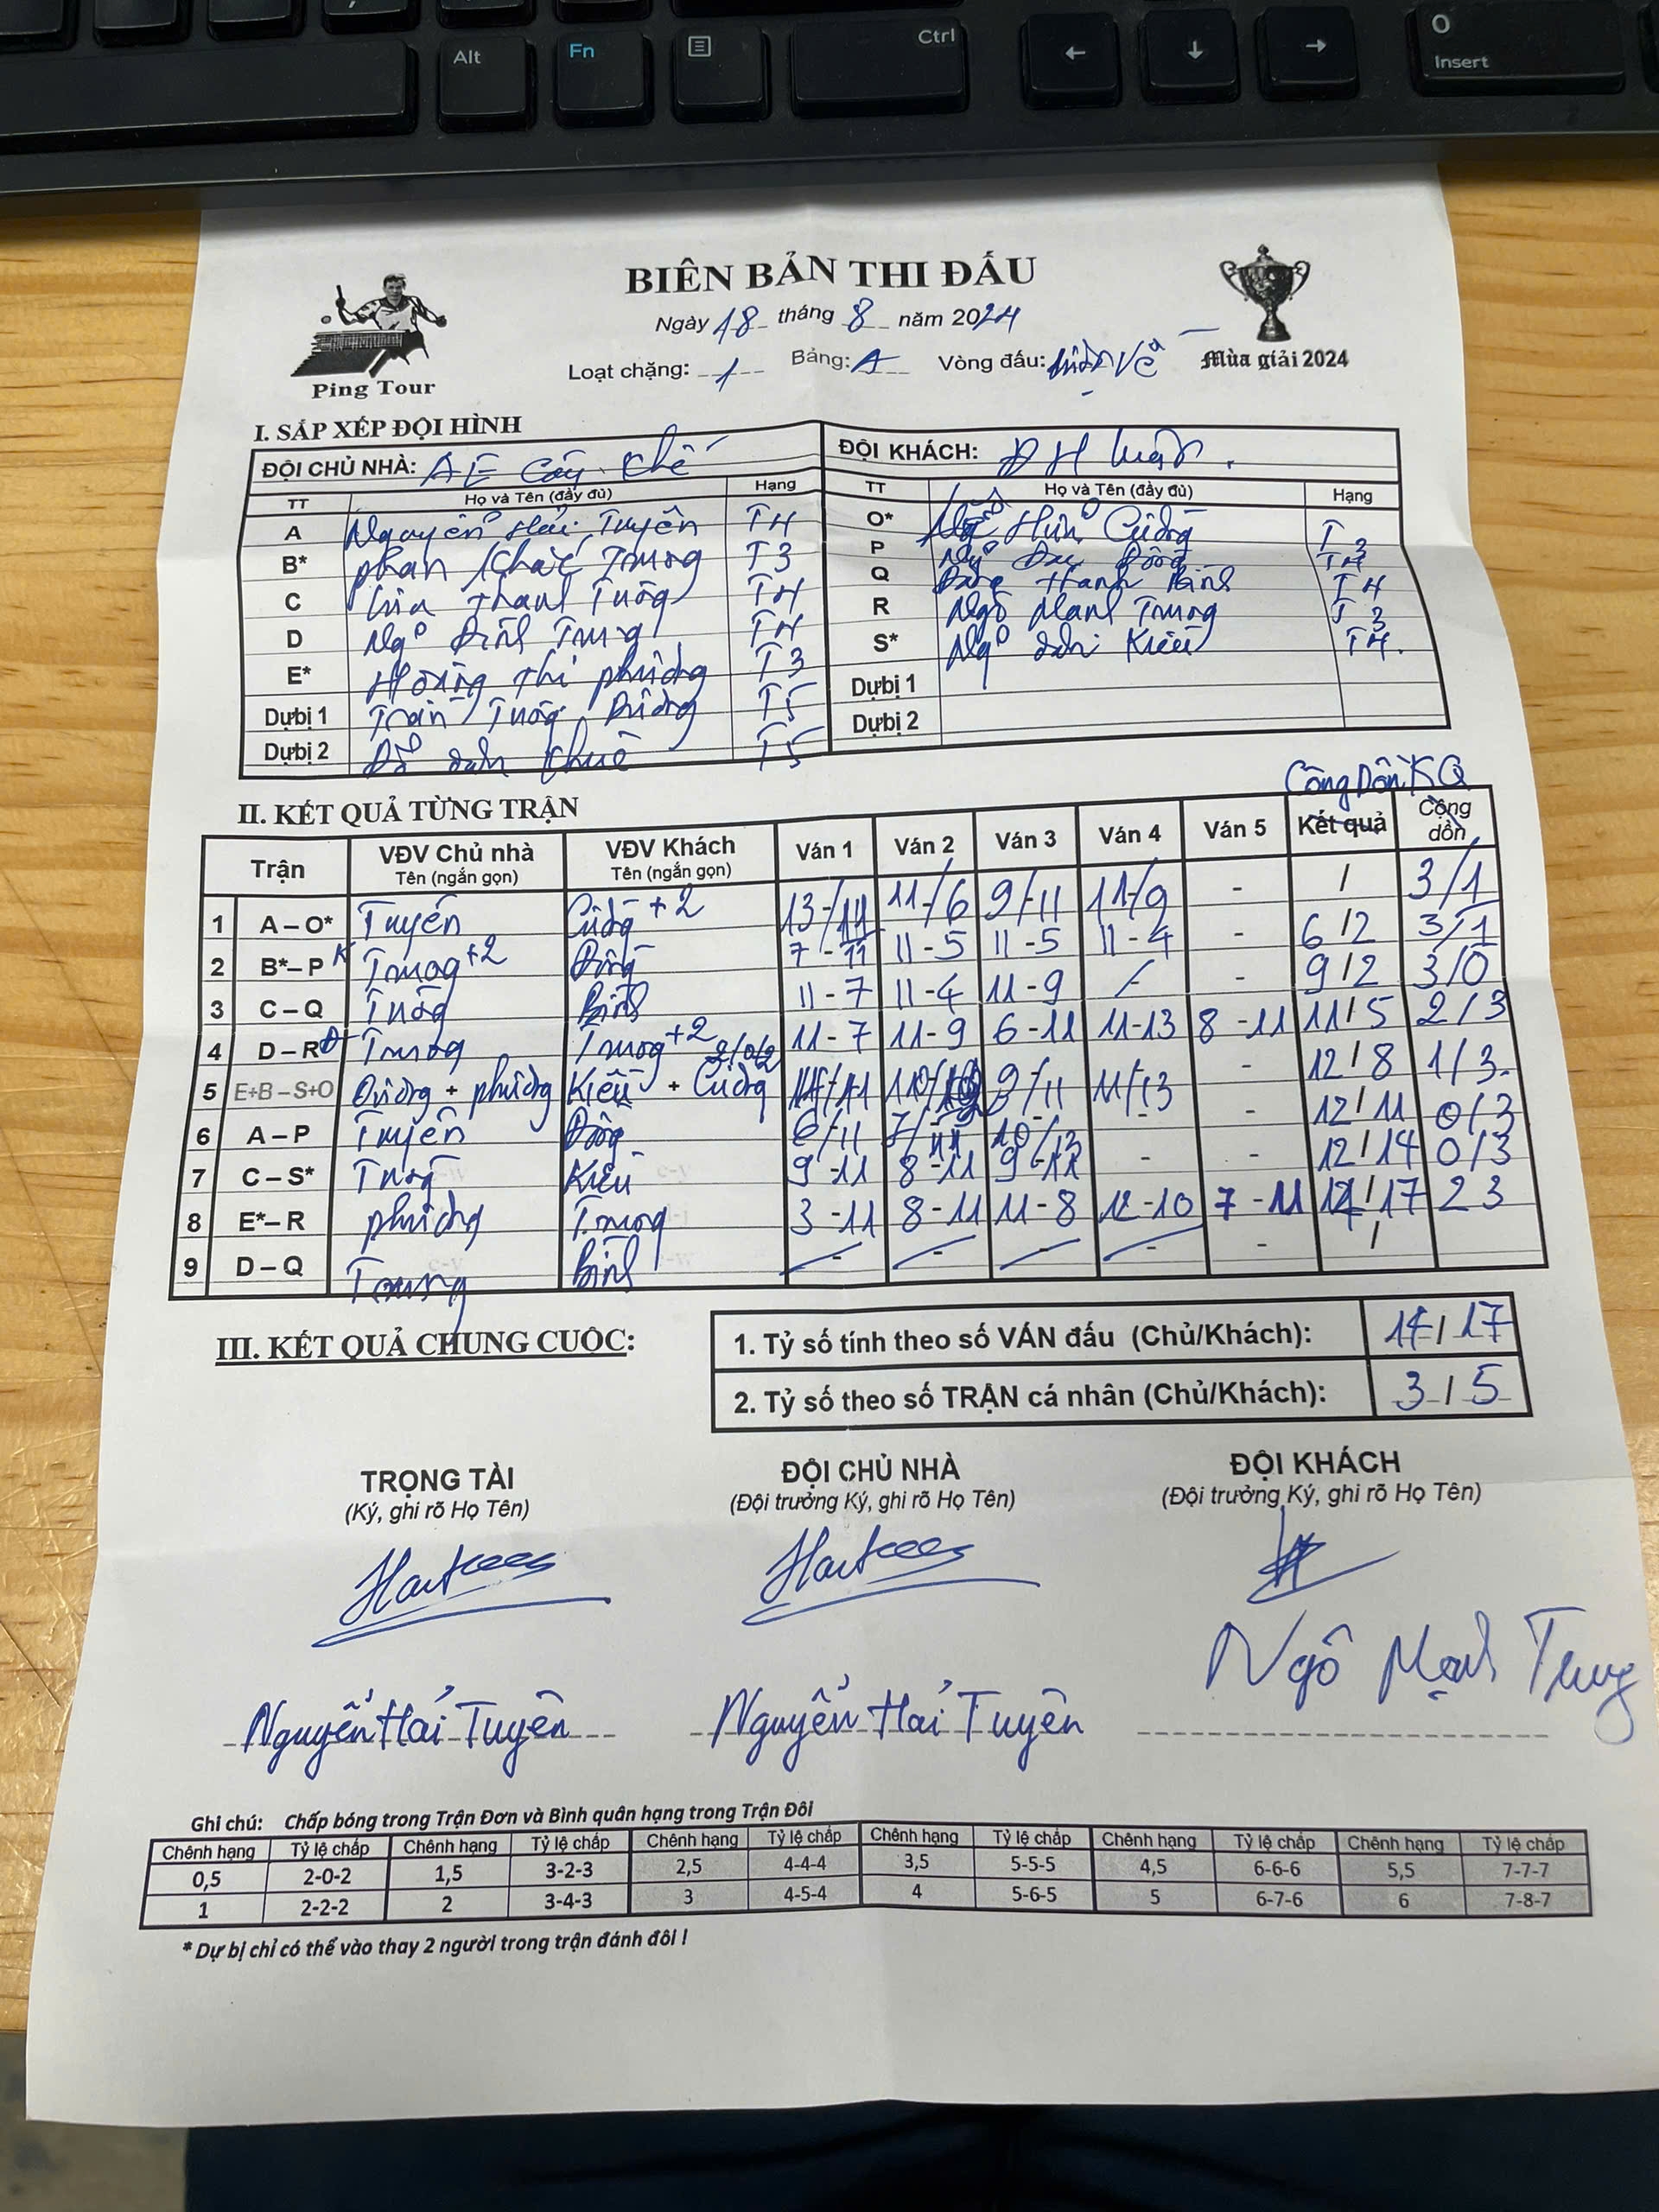 Alt Fn Ctrl ← ↓ → 0 Insert
BIÊN BẢN THI ĐẤU
Ngày 18 tháng 8 năm 2024
Loạt chặng: 1 Bảng: A Vòng đấu: Về
Ping Tour
Mùa giải 2024
I. SẮP XẾP ĐỘI HÌNH
ĐỘI CHỦ NHÀ: AE Cây Khế
ĐỘI KHÁCH: ĐH
TT Họ và Tên (đầy đủ) Hạng
A Nguyễn Hải Tuyên T4
B* Phan Khắc Trung T3
C Thanh Tùng T4
D Ngô Đình Trung T4
E* Hoàng Thị Phương T3
Dựbị 1 Trần Tùng Dương T5
Dựbị 2 Đỗ T5
TT Họ và Tên (đầy đủ) Hạng
O* Cường T3
P Đông T4
Q Thanh Bình T4
R Ngô Mạnh Trung T3
S* Ngô Kiều T4.
Dựbị 1
Dựbị 2
Cộng Dồn KQ
II. KẾT QUẢ TỪNG TRẬN
Trận VĐV Chủ nhà Tên (ngắn gọn) VĐV Khách Tên (ngắn gọn) Ván 1 Ván 2 Ván 3 Ván 4 Ván 5 Kết quả Cộng dồn
1 A – O* Tuyên Cường +2 13-/11 11-/6 9/-11 11-/9 - / 3/1
2 B*– P Trung +2 Đông 7-11 11-5 11-5 11-4 - 6/2 3/1
3 C – Q Tùng Bình 11-7 11-4 11-9 - 9/2 3/0
4 D – R Trung Trung +2 11-7 11-9 6-11 11-13 8-11 11/5 2/3
5 E+B – S+O Dương + Phương Kiều + Cường 2/0/2 9/11 11/13 - 12/8 1/3.
6 A – P Tuyên Đông 6/11 7/11 10/12 - - 12/11 0/3
7 C – S* Tùng Kiều 9-11 8-11 9-11 - - 12/14 0/3
8 E*– R Phương Trung 3-11 8-11 11-8 12-10 7-11 14/17 2 3
9 D – Q Trung Bình - - - - - /
III. KẾT QUẢ CHUNG CUỘC:
1. Tỷ số tính theo số VÁN đấu (Chủ/Khách): 14/17
2. Tỷ số theo số TRẬN cá nhân (Chủ/Khách): 3/5
TRỌNG TÀI ĐỘI CHỦ NHÀ ĐỘI KHÁCH
(Ký, ghi rõ Họ Tên) (Đội trưởng Ký, ghi rõ Họ Tên) (Đội trưởng Ký, ghi rõ Họ Tên)
Nguyễn Hải Tuyên Nguyễn Hải Tuyên Ngô Mạnh Trung
Ghi chú: Chấp bóng trong Trận Đơn và Bình quân hạng trong Trận Đôi
Chênh hạng Tỷ lệ chấp Chênh hạng Tỷ lệ chấp Chênh hạng Tỷ lệ chấp Chênh hạng Tỷ lệ chấp Chênh hạng Tỷ lệ chấp Chênh hạng Tỷ lệ chấp
0,5 2-0-2 1,5 3-2-3 2,5 4-4-4 3,5 5-5-5 4,5 6-6-6 5,5 7-7-7
1 2-2-2 2 3-4-3 3 4-5-4 4 5-6-5 5 6-7-6 6 7-8-7
* Dự bị chỉ có thể vào thay 2 người trong trận đánh đôi !